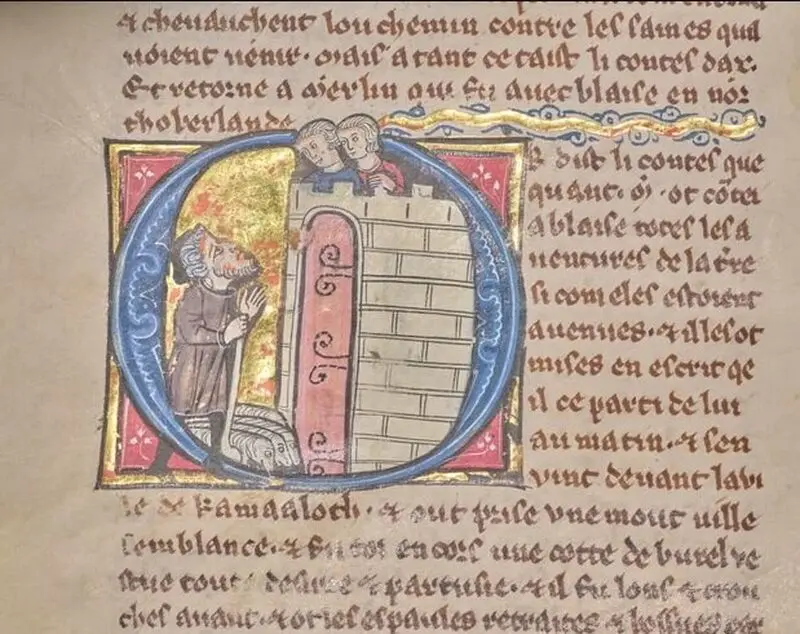 & cheuauchent lou chemin contre les saines qui
uoient uenir. Mais atant ce taist li contes dax.
Et retorne a Merlin qui fu auec blaise en nor
thoberlande
R dist li contes que
quant .M. ot contei
a blaise totes les a
uentures de la tre
si com eles estoient
auenues. & il les ot
mises en escrit qe
il ce parti de lui
au matin. & sen
uint deuant la vi
le de Kamaaloth. & out prise vne mout uille
semblance. & fu en cors une cotte de burel ve
stue toute desiree & partusie. & il fu lons & crou
ches auant & ot les espaules retraites &